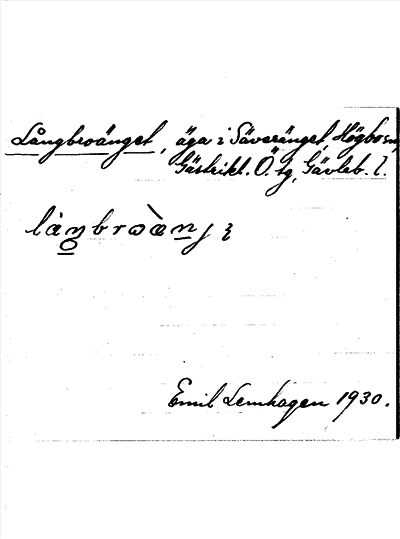 Långbroänget, äga i Säveränget, Högbo sn,
Gästrikl. Ö. tg, Gävleb. l.
Emil Lemhagen 1930.